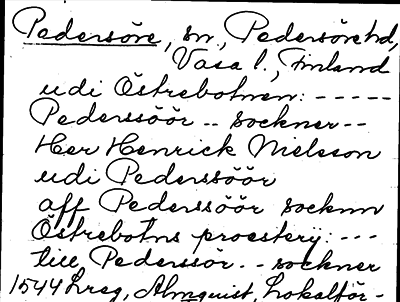 Pedersöre, sn, Pedersöre hd,
Vasa l., Finland
udi Östrebotnen: -----
Pedersöör -- sockner--
Her Henrick Nielsson
udi Pederssöör
aff Pederssöör socknn
Östrebotns proestery: ---
till Pederssör. - sockner
1544 Lreg, Almquist, Lokalför-